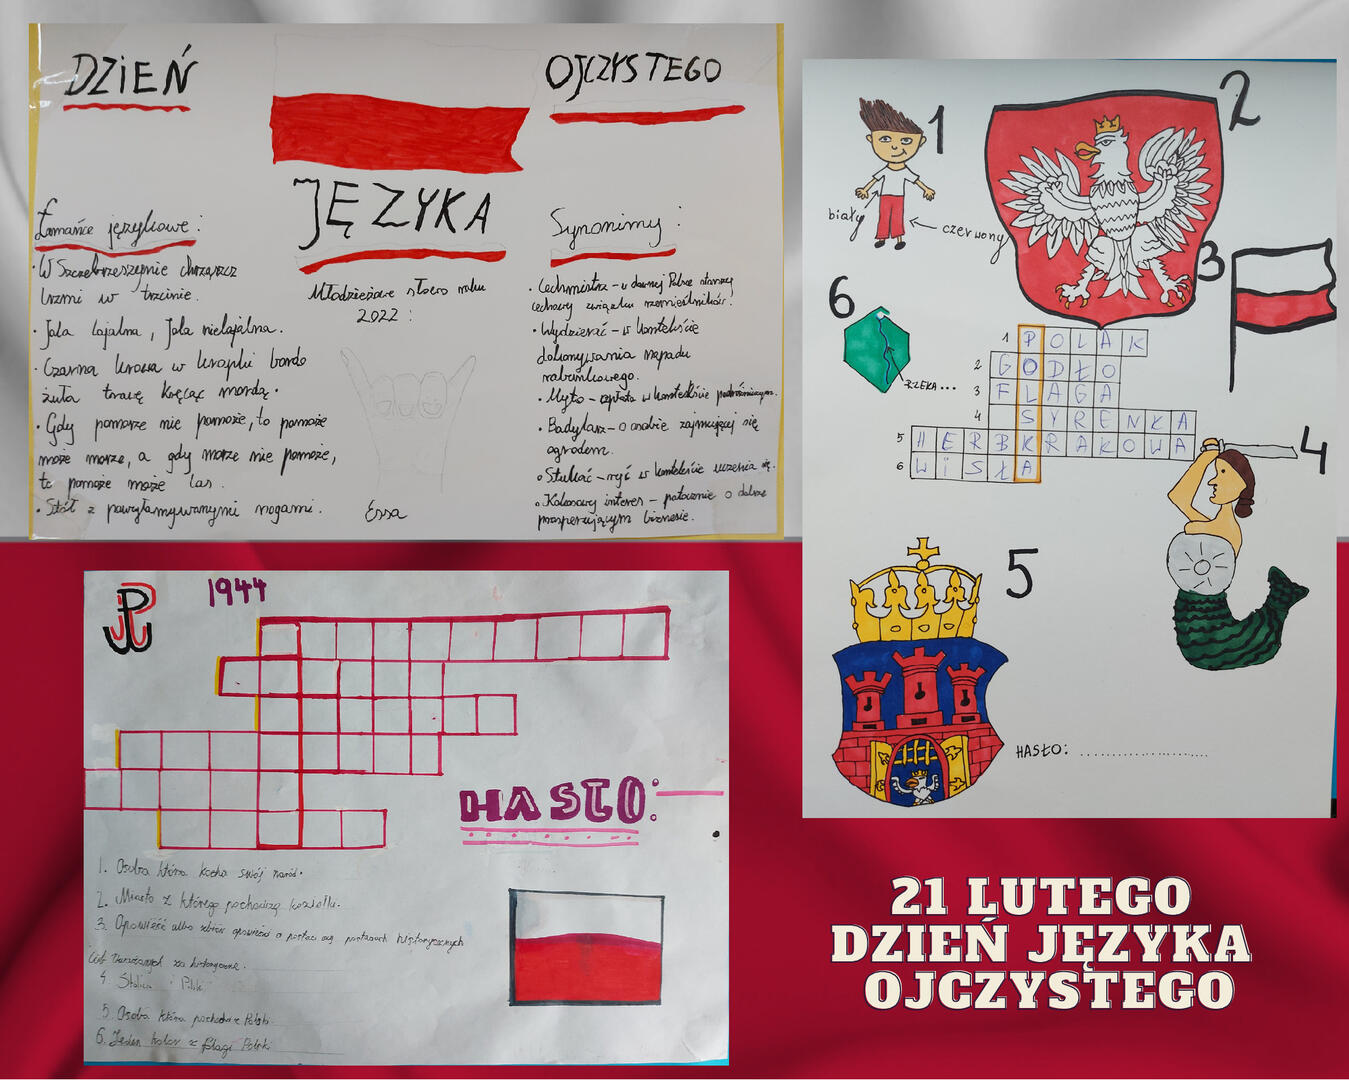 DZIEŃ
OJCZYSTEGO
JĘZYKA
Łamańce językowe:
• W Szczebrzeszynie chrząszcz
brzmi w trzcinie.
• Jola lojalna, Jola nielojalna.
• Czarna krowa w kropki bordo
żuła trawę kręcąc mordą.
• Gdy pomorze nie pomoże, to pomoże
może morze, a gdy morze nie pomoże,
to pomoże może las.
• Stół z powyłamywanymi nogami.
Młodzieżowe słowo roku
2022:
Essa
Synonimy:
• Cechmistrz – w dawnej Polsce starszy
cechowy związku rzemieślników.
• Wydzierać – w kontekście
dokonywania napadu
rabunkowego.
• Myto – opłata w kontekście
• Badylarz – o osobie zajmującej się
ogrodem.
• Stukać – ryć w kontekście uczenia się.
• Kokosowy interes – potocznie o dobrze
prosperującym biznesie.
1
2
biały
czerwony
3
6
RZEKA...
1 POLAK
2 GODŁO
3 FLAGA
4 SYRENKA
5 HERBKRAKOWA
6 WISŁA
4
5
HASŁO: ........................
PW
1944
HASŁO:
1. Osoba która kocha swój naród.
2. Miasto z którego pochodzą koziołki.
3. Opowieść albo zbiór opowieści o postaciach historycznych
lub uważanych za historyczne.
4. Stolica Polski
5. Osoba która pochodzi z Polski.
6. Jeden kolor z flagi Polski
21 LUTEGO
DZIEŃ JĘZYKA
OJCZYSTEGO